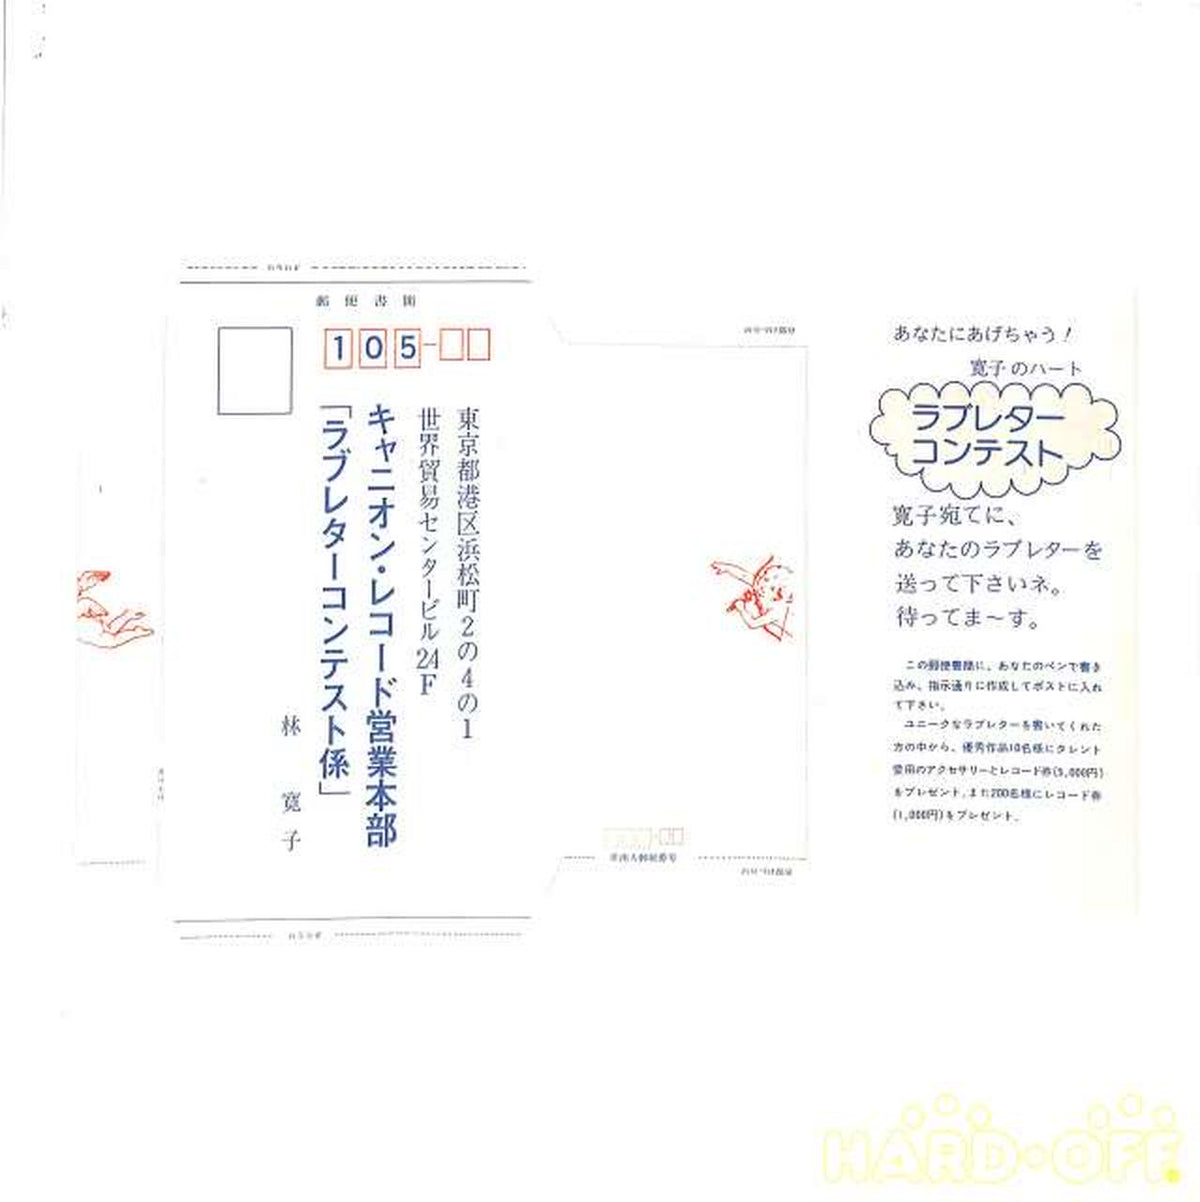 郵便書簡
105
東京都港区浜松町2の4の1
世界貿易センタービル24F
キャニオン・レコード営業本部
「ラブレターコンテスト係」
林寛子
差出人郵便番号
あなたにあげちゃう!
寛子のハート
ラブレター
コンテスト
寛子宛てに、
あなたのラブレターを
送って下さいネ。
待ってま〜す。
この郵便書簡に、あなたのペンで書き
込み、指示通りに作成してポストに入れ
て下さい。
ユニークなラブレターを書いてくれた
方の中から、優秀作品10名様にタレント
愛用のアクセサリーとレコード券(5,000円)
をプレゼント。また200名様にレコード券
(1,000円)をプレゼント。
HARD・OFF